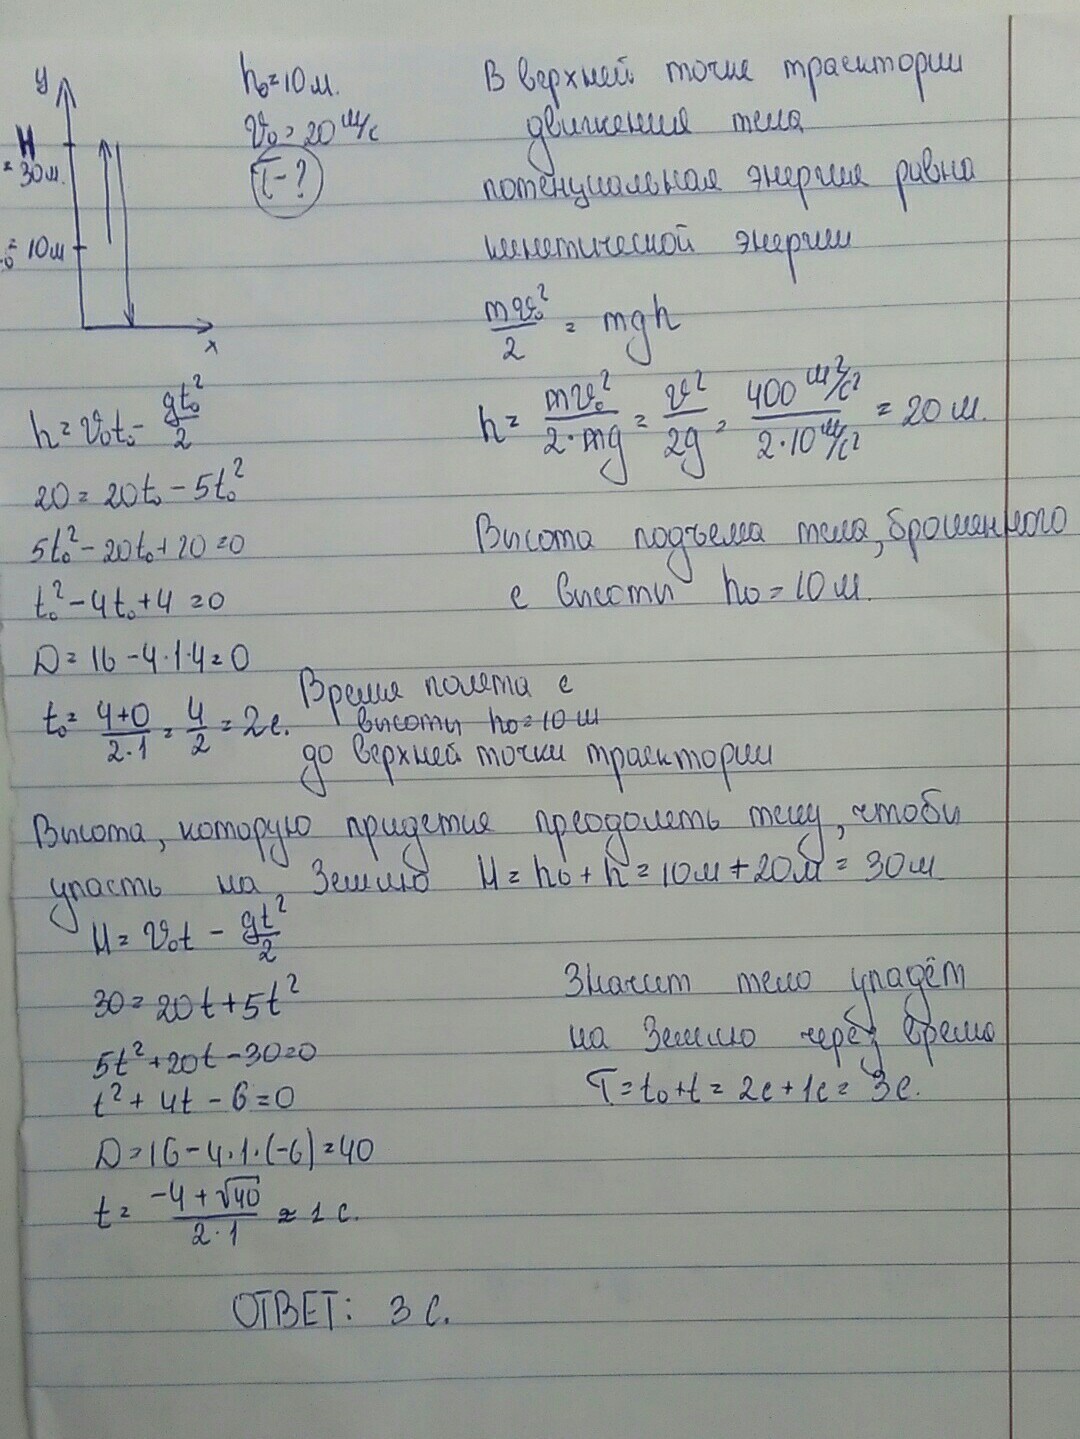 y
H
= 30м.
h₀ = 10м
x
h₀ = 10 м.
V₀ = 20 м/с
T - ?
В верхней точке траектории
движения тела
потенциальная энергия равна
кинетической энергии
mV₀²/2 = mgh
h = mV₀²/2·mg = V²/2g = 400 м²/с²/2·10 м/с² = 20 м.
Высота подъема тела, брошенного
с высоты h₀ = 10 м.
h = V₀t₀ - gt₀²/2
20 = 20t₀ - 5t₀²
5t₀² - 20t₀ + 20 = 0
t₀² - 4t₀ + 4 = 0
D = 16 - 4·1·4 = 0
t₀ = 4+0/2·1 = 4/2 = 2с.
Время полета с
высоты h₀ = 10 м
до верхней точки траектории
Высота, которую придется преодолеть телу, чтобы
упасть на Землю H = h₀ + h = 10м + 20м = 30м
H = V₀t - gt²/2
30 = 20t + 5t²
5t² + 20t - 30 = 0
t² + 4t - 6 = 0
D = 16 - 4·1·(-6) = 40
t = -4 + √40/2·1 ≈ 1 с.
Значит тело упадёт
на Землю через время
T = t₀ + t = 2с + 1с = 3с.
ОТВЕТ: 3 с.